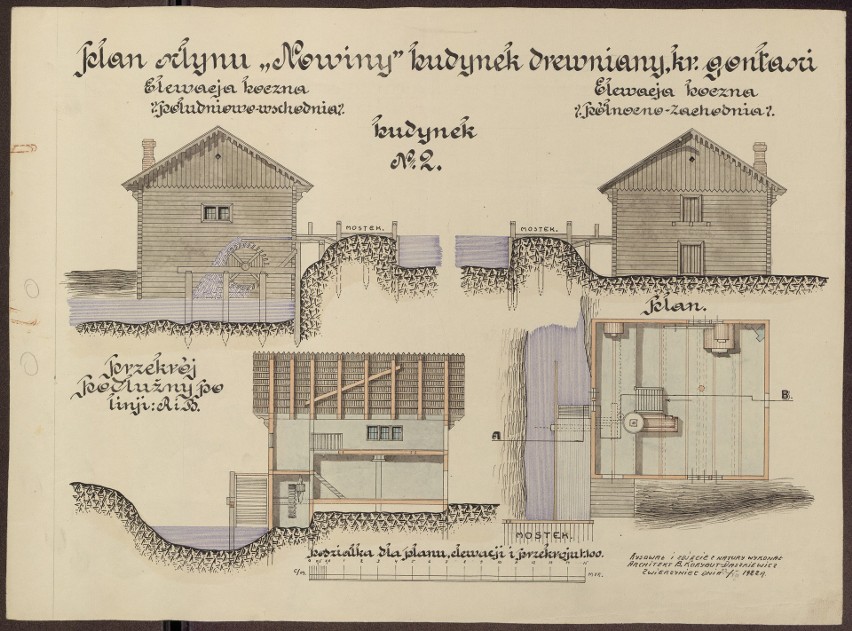 Plan młynu „Nowiny” budynek drewniany, kr. gontami
Elewacja boczna
/:południowo-wschodnia/:
Elewacja boczna
/:północno-zachodnia/:
budynek
№ 2.
MOSTEK.
MOSTEK.
Plan.
Przekrój
podłużny po
linji: A i B.
A
B
MOSTEK.
podziałka dla planu, elewacji i przekroju 1:100.
RYSOWAŁ I ZDJĘCIE Z NATURY WYKONAŁ
ARCHITEKT B. KORYBUT-DASZKIEWICZ
ZWIERZYNIEC DNIA 1922 R.